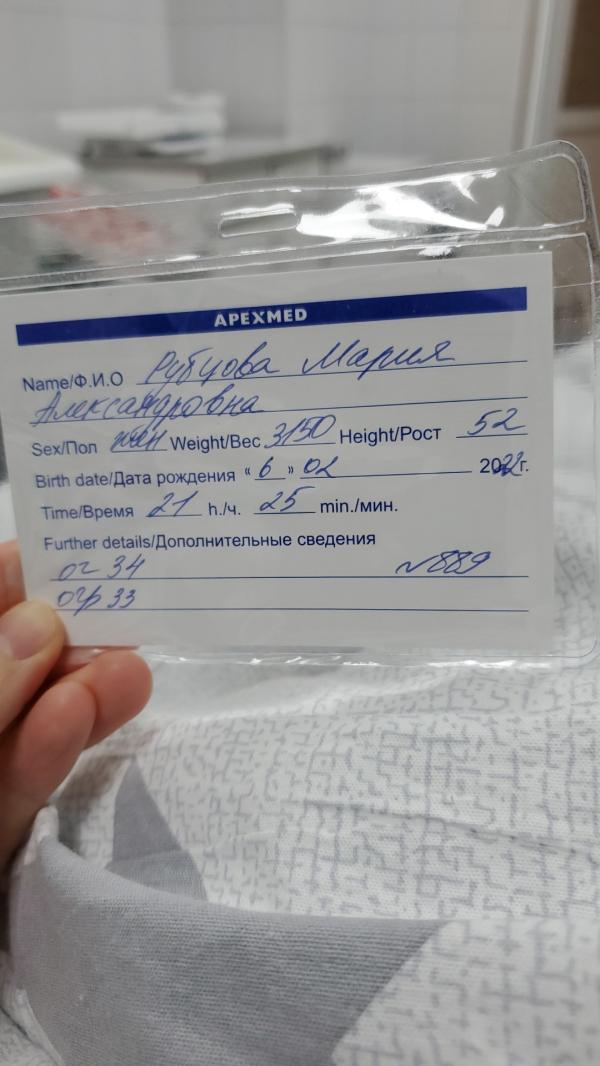 APEXMED
Name/Ф.И.О Рубцова Мария
Александровна
Sex/Пол жен Weight/Вес 3150 Height/Рост 52
Birth date/Дата рождения « 6 » 02 2022г.
Time/Время 21 h./ч. 25 min./мин.
Further details/Дополнительные сведения
ог 34 №889
огр 33